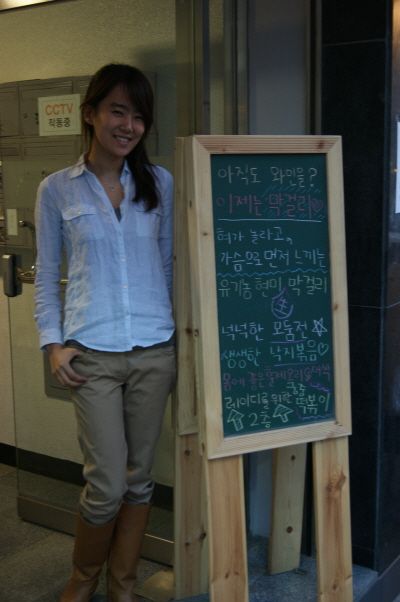 CCTV
작동중
아직도 와인을?
이제는 막걸리
혀가 놀라고,
가슴으로 먼저 느끼는
유기농 현미 막걸리
넉넉한 모둠전
생생한 낙지볶음
몸에 좋은 훈제오리&새싹
레이디를 위한 궁중떡볶이
2층